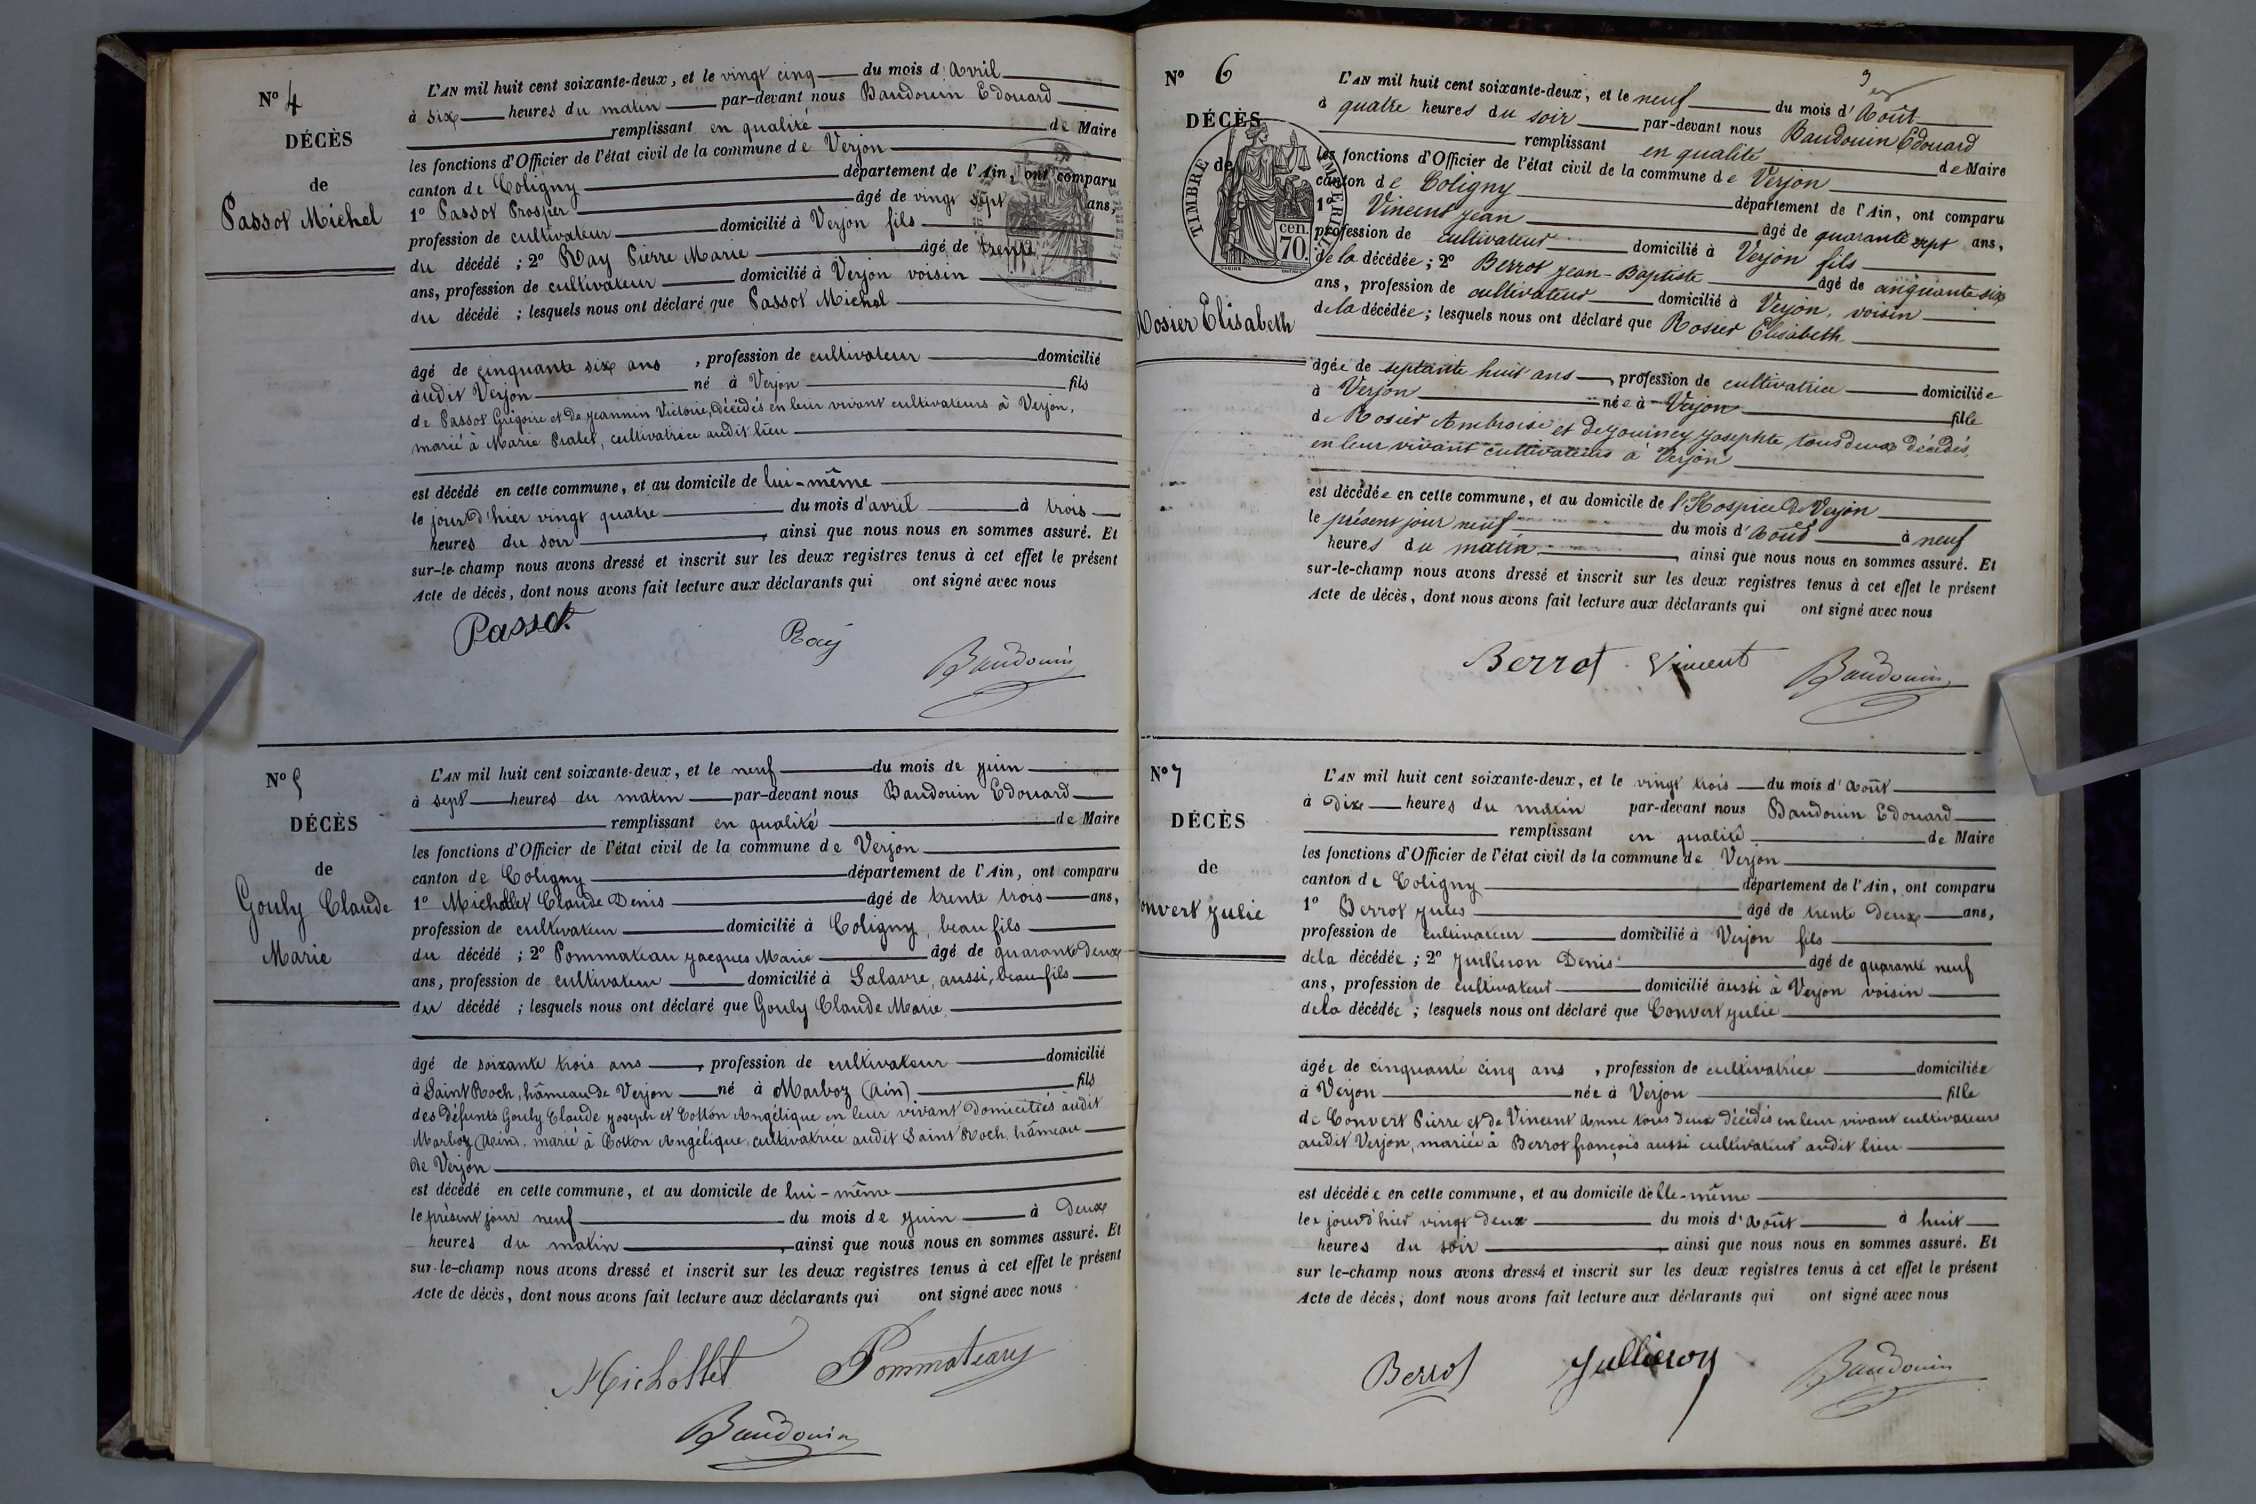 N° 4
DÉCÈS
de
Passot Michel
L'AN mil huit cent soixante-deux, et le vingt cinq du mois d'Avril
à six heures du matin par-devant nous Baudouin Edouard
remplissant en qualité de Maire
les fonctions d'Officier de l'état civil de la commune de Verjon
canton de Coligny département de l'Ain, ont comparu
1° Passot Prosper âgé de vingt sept ans,
profession de cultivateur domicilié à Verjon fils
du décédé ; 2° Ray Pierre Marie âgé de trente
ans, profession de cultivateur domicilié à Verjon voisin
du décédé ; lesquels nous ont déclaré que Passot Michel
âgé de cinquante six ans , profession de cultivateur domicilié
audit Verjon né à Verjon fils
de Passot Grégoire et de Jeannin Victoire, décédés en leur vivant cultivateurs à Verjon,
marié à Marie Pralet, cultivatrice audit lieu
est décédé en cette commune, et au domicile de lui-même
le jour d'hier vingt quatre du mois d'avril à trois
heures du soir , ainsi que nous nous en sommes assuré. Et
sur-le-champ nous avons dressé et inscrit sur les deux registres tenus à cet effet le présent
Acte de décès, dont nous avons fait lecture aux déclarants qui ont signé avec nous
Passot Ray Baudouin
N° 5
DÉCÈS
de
Gouly Claude
Marie
L'AN mil huit cent soixante-deux, et le neuf du mois de Juin
à sept heures du matin par-devant nous Baudouin Edouard
remplissant en qualité de Maire
les fonctions d'Officier de l'état civil de la commune de Verjon
canton de Coligny département de l'Ain, ont comparu
1° Michollet Claude Denis âgé de trente trois ans,
profession de cultivateur domicilié à Coligny, beau fils
du décédé ; 2° Pommateau Jacques Marie âgé de quarante deux
ans, profession de cultivateur domicilié à Salavre, aussi, beau fils
du décédé ; lesquels nous ont déclaré que Gouly Claude Marie
âgé de soixante trois ans , profession de cultivateur domicilié
à Saint Roch, hâmeau de Verjon né à Marboz (Ain) fils
des défunts Gouly Claude Joseph et Cotton Angélique en leur vivant domiciliés audit
Marboz (Ain), marié à Cotton Angélique, cultivatrice audit Saint Roch, hâmeau
de Verjon
est décédé en cette commune, et au domicile de lui-même
le présent jour neuf du mois de Juin à deux
heures du matin , ainsi que nous nous en sommes assuré. Et
sur-le-champ nous avons dressé et inscrit sur les deux registres tenus à cet effet le présent
Acte de décès, dont nous avons fait lecture aux déclarants qui ont signé avec nous
Michollet Pommateau
Baudouin
N° 6
DÉCÈS
de
TIMBRE IMPERIAL
cen.
70.
Rosier Elisabeth
L'AN mil huit cent soixante-deux, et le neuf du mois d'Août
à quatre heures du soir par-devant nous Baudouin Edouard
remplissant en qualité de Maire
les fonctions d'Officier de l'état civil de la commune de Verjon
canton de Coligny département de l'Ain, ont comparu
1° Vincent Jean âgé de quarante sept ans,
profession de cultivateur domicilié à Verjon fils
de la décédée ; 2° Berrot Jean-Baptiste âgé de cinquante six
ans, profession de cultivateur domicilié à Verjon, voisin
de la décédée ; lesquels nous ont déclaré que Rosier Elisabeth
âgée de septante huit ans , profession de cultivatrice domiciliée
à Verjon née à Verjon fille
de Rosier Ambroise et de Jouincy Josephte, tous deux décédés,
en leur vivant cultivateurs à Verjon
est décédée en cette commune, et au domicile de l'Hospice de Verjon
le présent jour neuf du mois d'Août à neuf
heures du matin , ainsi que nous nous en sommes assuré. Et
sur-le-champ nous avons dressé et inscrit sur les deux registres tenus à cet effet le présent
Acte de décès, dont nous avons fait lecture aux déclarants qui ont signé avec nous
Berrot Vincent Baudouin
N° 7
DÉCÈS
de
onvert Julie
L'AN mil huit cent soixante-deux, et le vingt trois du mois d'Août
à dix heures du matin par-devant nous Baudouin Edouard
remplissant en qualité de Maire
les fonctions d'Officier de l'état civil de la commune de Verjon
canton de Coligny département de l'Ain, ont comparu
1° Berrot Jules âgé de trente deux ans,
profession de cultivateur domicilié à Verjon fils
de la décédée ; 2° Juilleron Denis âgé de quarante neuf
ans, profession de cultivateur domicilié aussi à Verjon voisin
de la décédée ; lesquels nous ont déclaré que Convert Julie
âgée de cinquante cinq ans , profession de cultivatrice domiciliée
à Verjon née à Verjon fille
de Convert Pierre et de Vincent Anne tous deux décédés en leur vivant cultivateurs
audit Verjon, mariée à Berrot françois aussi cultivateur audit lieu
est décédée en cette commune, et au domicile d'elle-même
le jour d'hier vingt deux du mois d'Août à huit
heures du soir , ainsi que nous nous en sommes assuré. Et
sur le-champ nous avons dressé et inscrit sur les deux registres tenus à cet effet le présent
Acte de décès, dont nous avons fait lecture aux déclarants qui ont signé avec nous
Berrot Julleron Baudouin